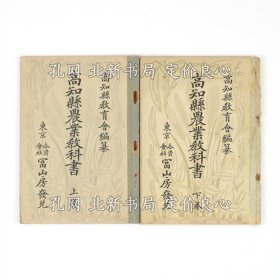 孔网 北新书局 定价良心
高知縣教育會編纂
高知縣農業教科書 上
東京 合資會社 冨山房發兌
高知縣教育會編纂
高知縣農業教科書 下
東京 合資會社 冨山房發兌
孔网 北新书局 定价良心
孔网 北新书局 定价良心